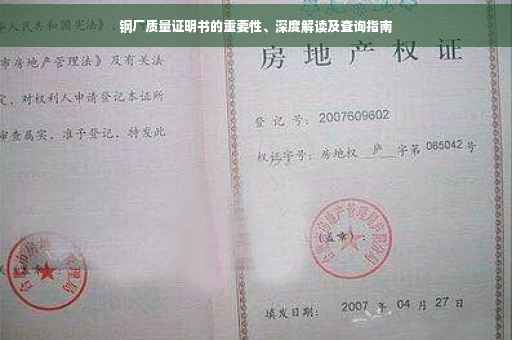 钢厂质量证明书的重要性、深度解读及查询指南
人民共和国宪法》及
市房地产管理法》及有关法
定，对权利人申请登记本证所
审查属实，准予登记，特发此
房地产权证
登记号：2007609602
权证字号：房地权 庐 字第 065042 号
(盖章)：
填发日期：2007 年 04 月 27 日